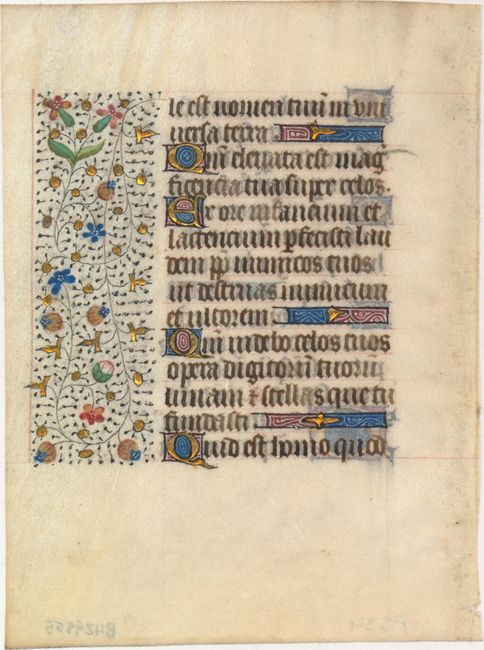 le est nomen tuum in uni
uersa terra
Qm̄ eleuata est mag
ficencia tua super celos.
Ex ore infancium et
lactencium pfecisti lau
dem pp̄ inimicos tuos
ut destruas inimicum
et ultorem
Qm̄ uidebo celos tuos
opera digitorum tuorum
lunam ⁊ stellas que tu
fundasti
Quid est homo quod